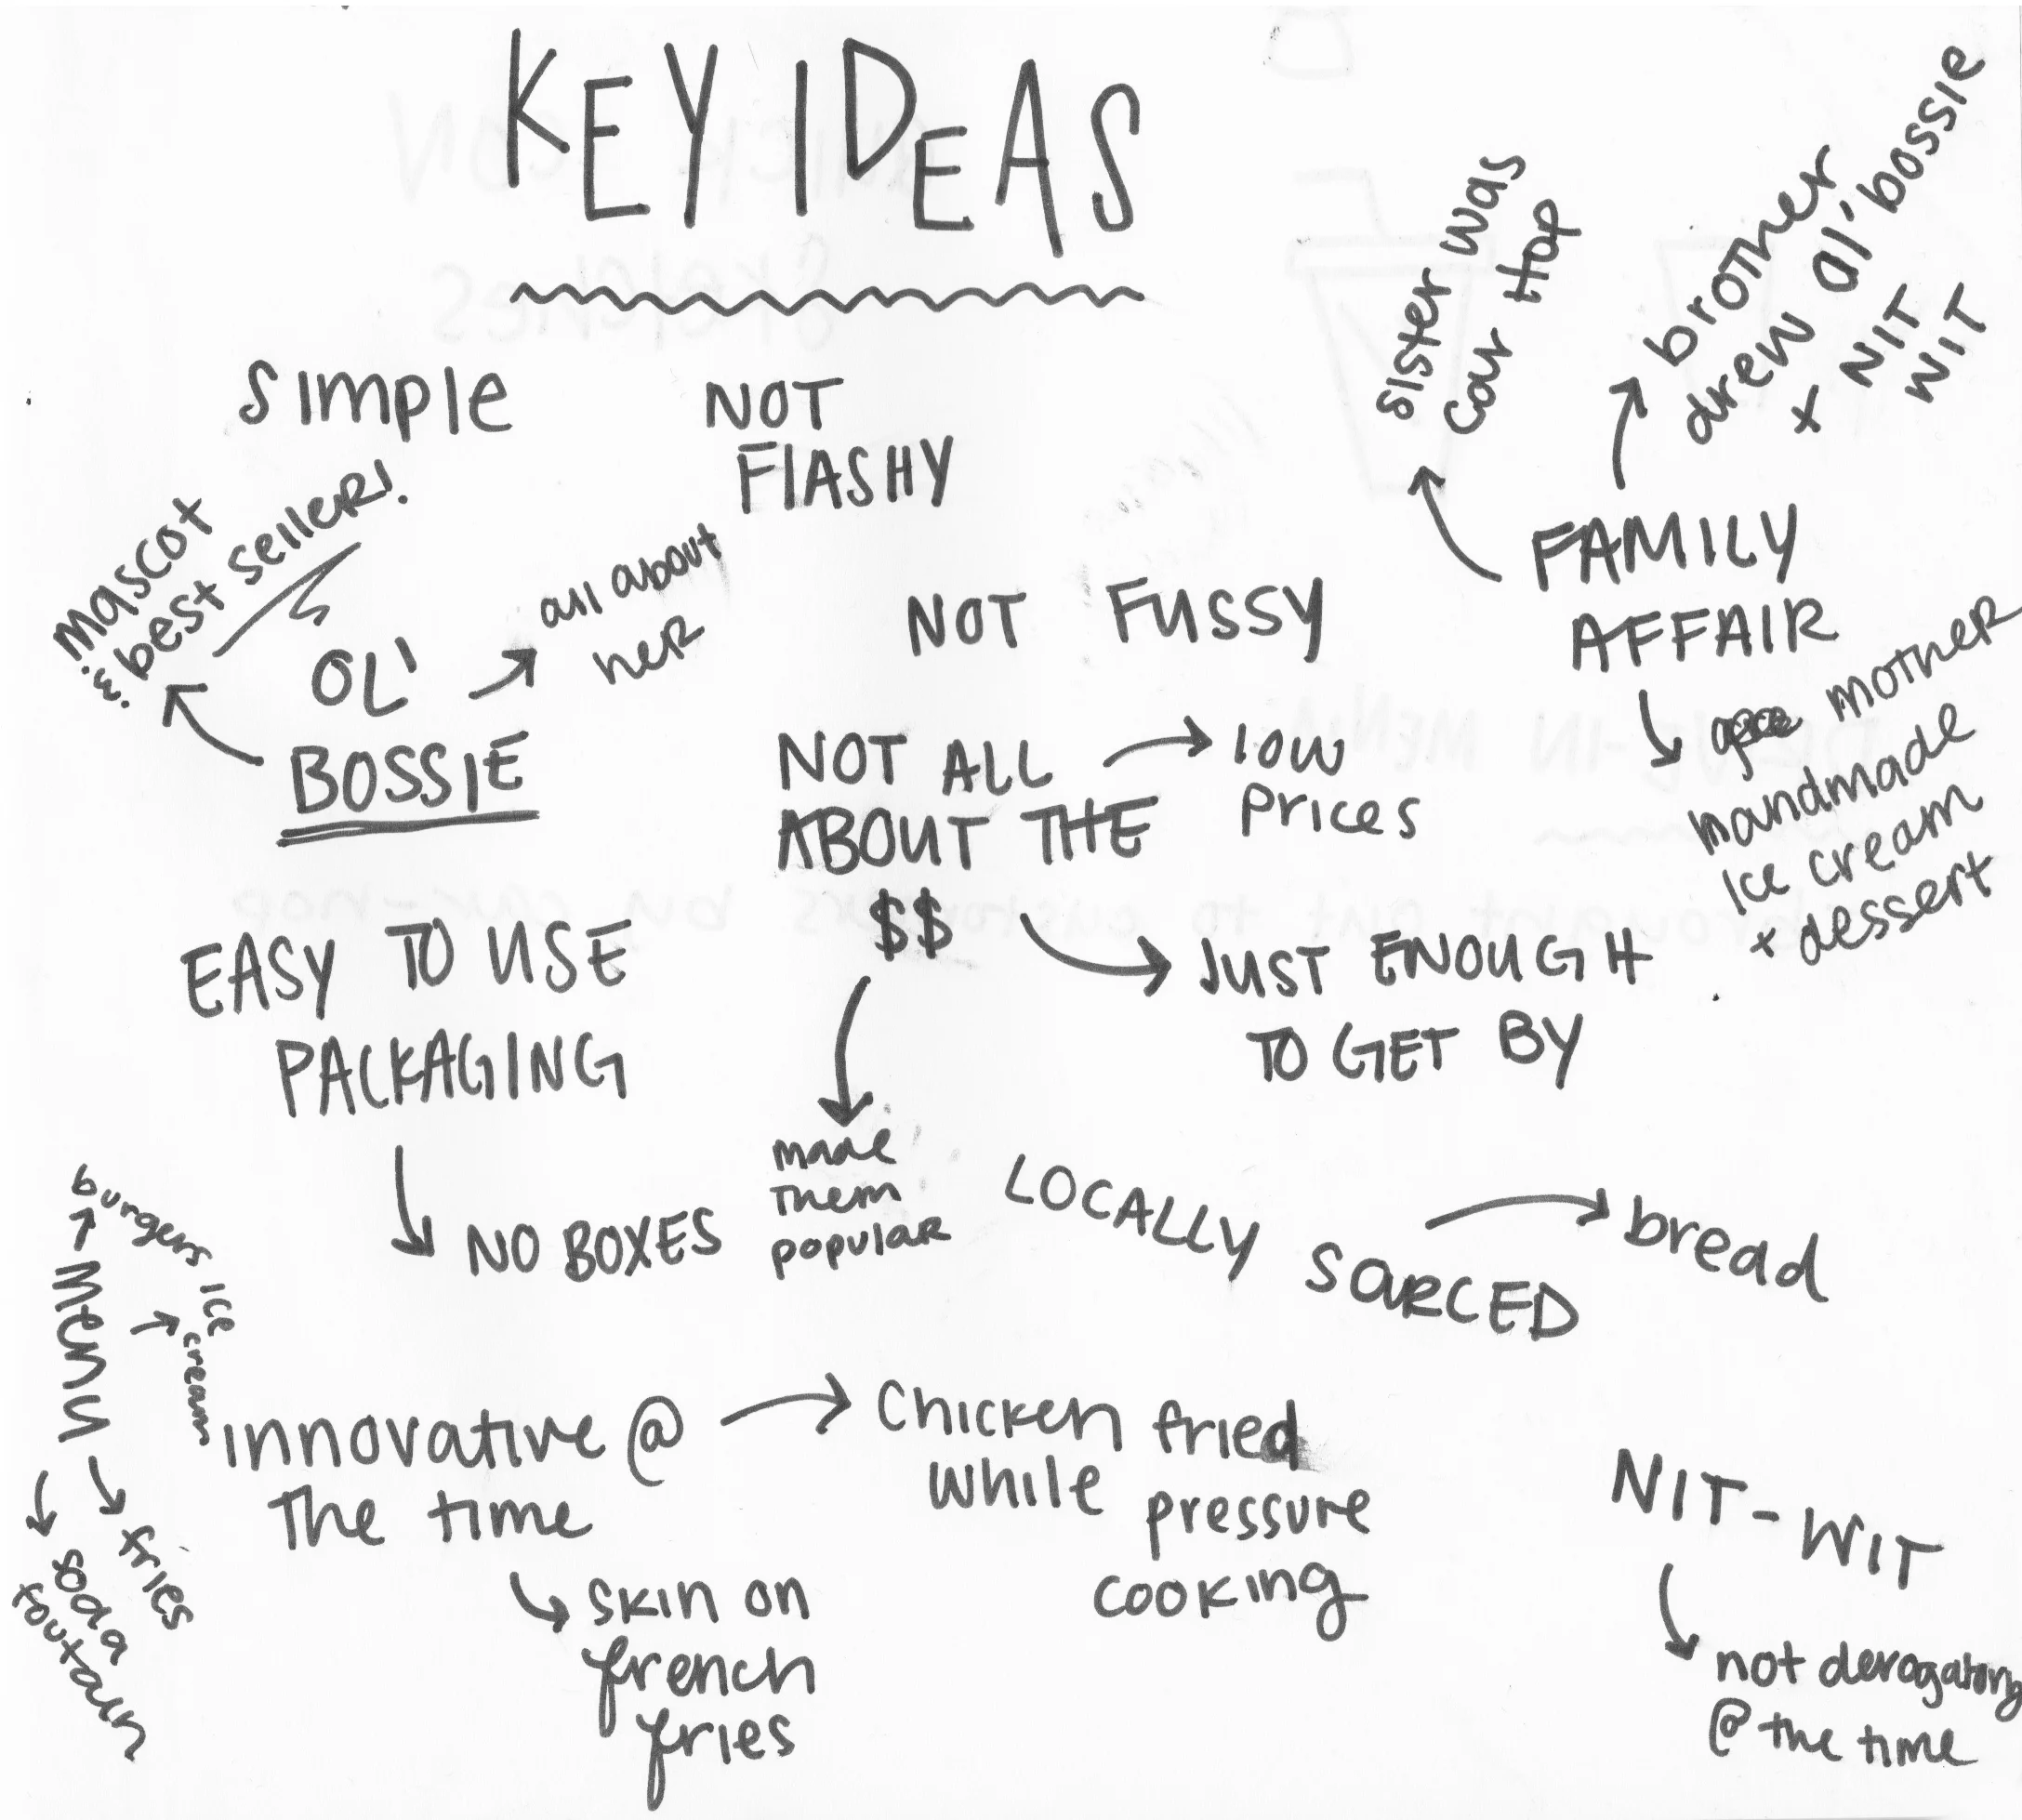 KEY IDEAS
SIMPLE
NOT
FLASHY
sister was
car Hop
brother
drew Ol' bossie
+ NIT
WIT
mascot
& best seller!
OL'
BOSSIE
all about
her
NOT FUSSY
FAMILY
AFFAIR
mother
handmade
Ice cream
+ dessert
NOT ALL
ABOUT THE
$$
low
Prices
JUST ENOUGH
TO GET BY
made
them
popular
EASY TO USE
PACKAGING
NO BOXES
LOCALLY
SOURCED
bread
Menu
burgers
Ice
cream
fries
soda
foutain
innovative @
The time
Chicken fried
While pressure
cooking
skin on
french
fries
NIT-WIT
not derogatory
@ the time